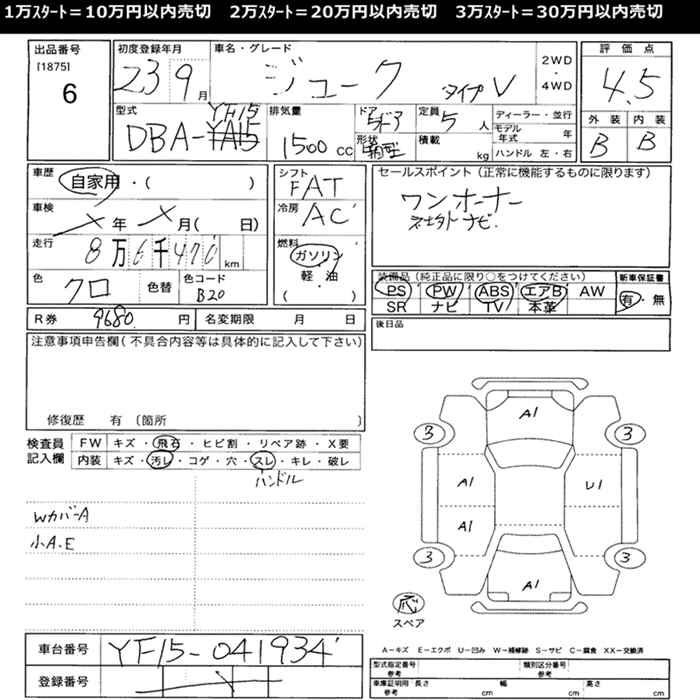 1万ｽﾀｰﾄ＝10万円以内売切　2万ｽﾀｰﾄ＝20万円以内売切　3万ｽﾀｰﾄ＝30万円以内売切
出品番号
[1875]
6
初度登録年月
23 9月
車名・グレード
ジューク タイプV
2WD
・
4WD
評価点
4.5
型式
YF15
DBA-YA15
排気量
1500 cc
ドア
5ドア
形状
箱型
定員
5人
積載
kg
ディーラー・並行
モデル年式 年
ハンドル 左・右
外装 内装
B B
車歴
自家用・( )
車検
× 年 × 月( 日)
走行
8万6千470 km
色
クロ
色替
色コード
B20
シフト
FAT
冷房
AC
燃料
ガソリン
軽・油
( )
セールスポイント（正常に機能するものに限ります）
ワンオーナー
ナビ
装備品（純正品に限り○をつけてください）
PS PW ABS エアB AW
SR ナビ TV 本革
新車保証書
有・無
後日品
R券 9680 円
名変期限 月 日
注意事項申告欄（不具合内容等は具体的に記入して下さい）
修復歴 有 〔箇所 〕
検査員
記入欄
FW キズ・飛石・ヒビ割・リペア跡・X要
内装 キズ・汚レ・コゲ・穴・スレ・キレ・破レ
ハンドル
Wカバ-A
小A.E
A1
3 3
A1 U1
A1
3 3
A1
応
スペア
A－キズ E－エクボ U－凹み W－補修跡 S－サビ C－腐食 XX－交換済
車台番号
YF15-041934
登録番号
型式指定番号
参考
類別区分番号
参考
車庫証明用
参考
長さ cm 幅 cm 高さ cm